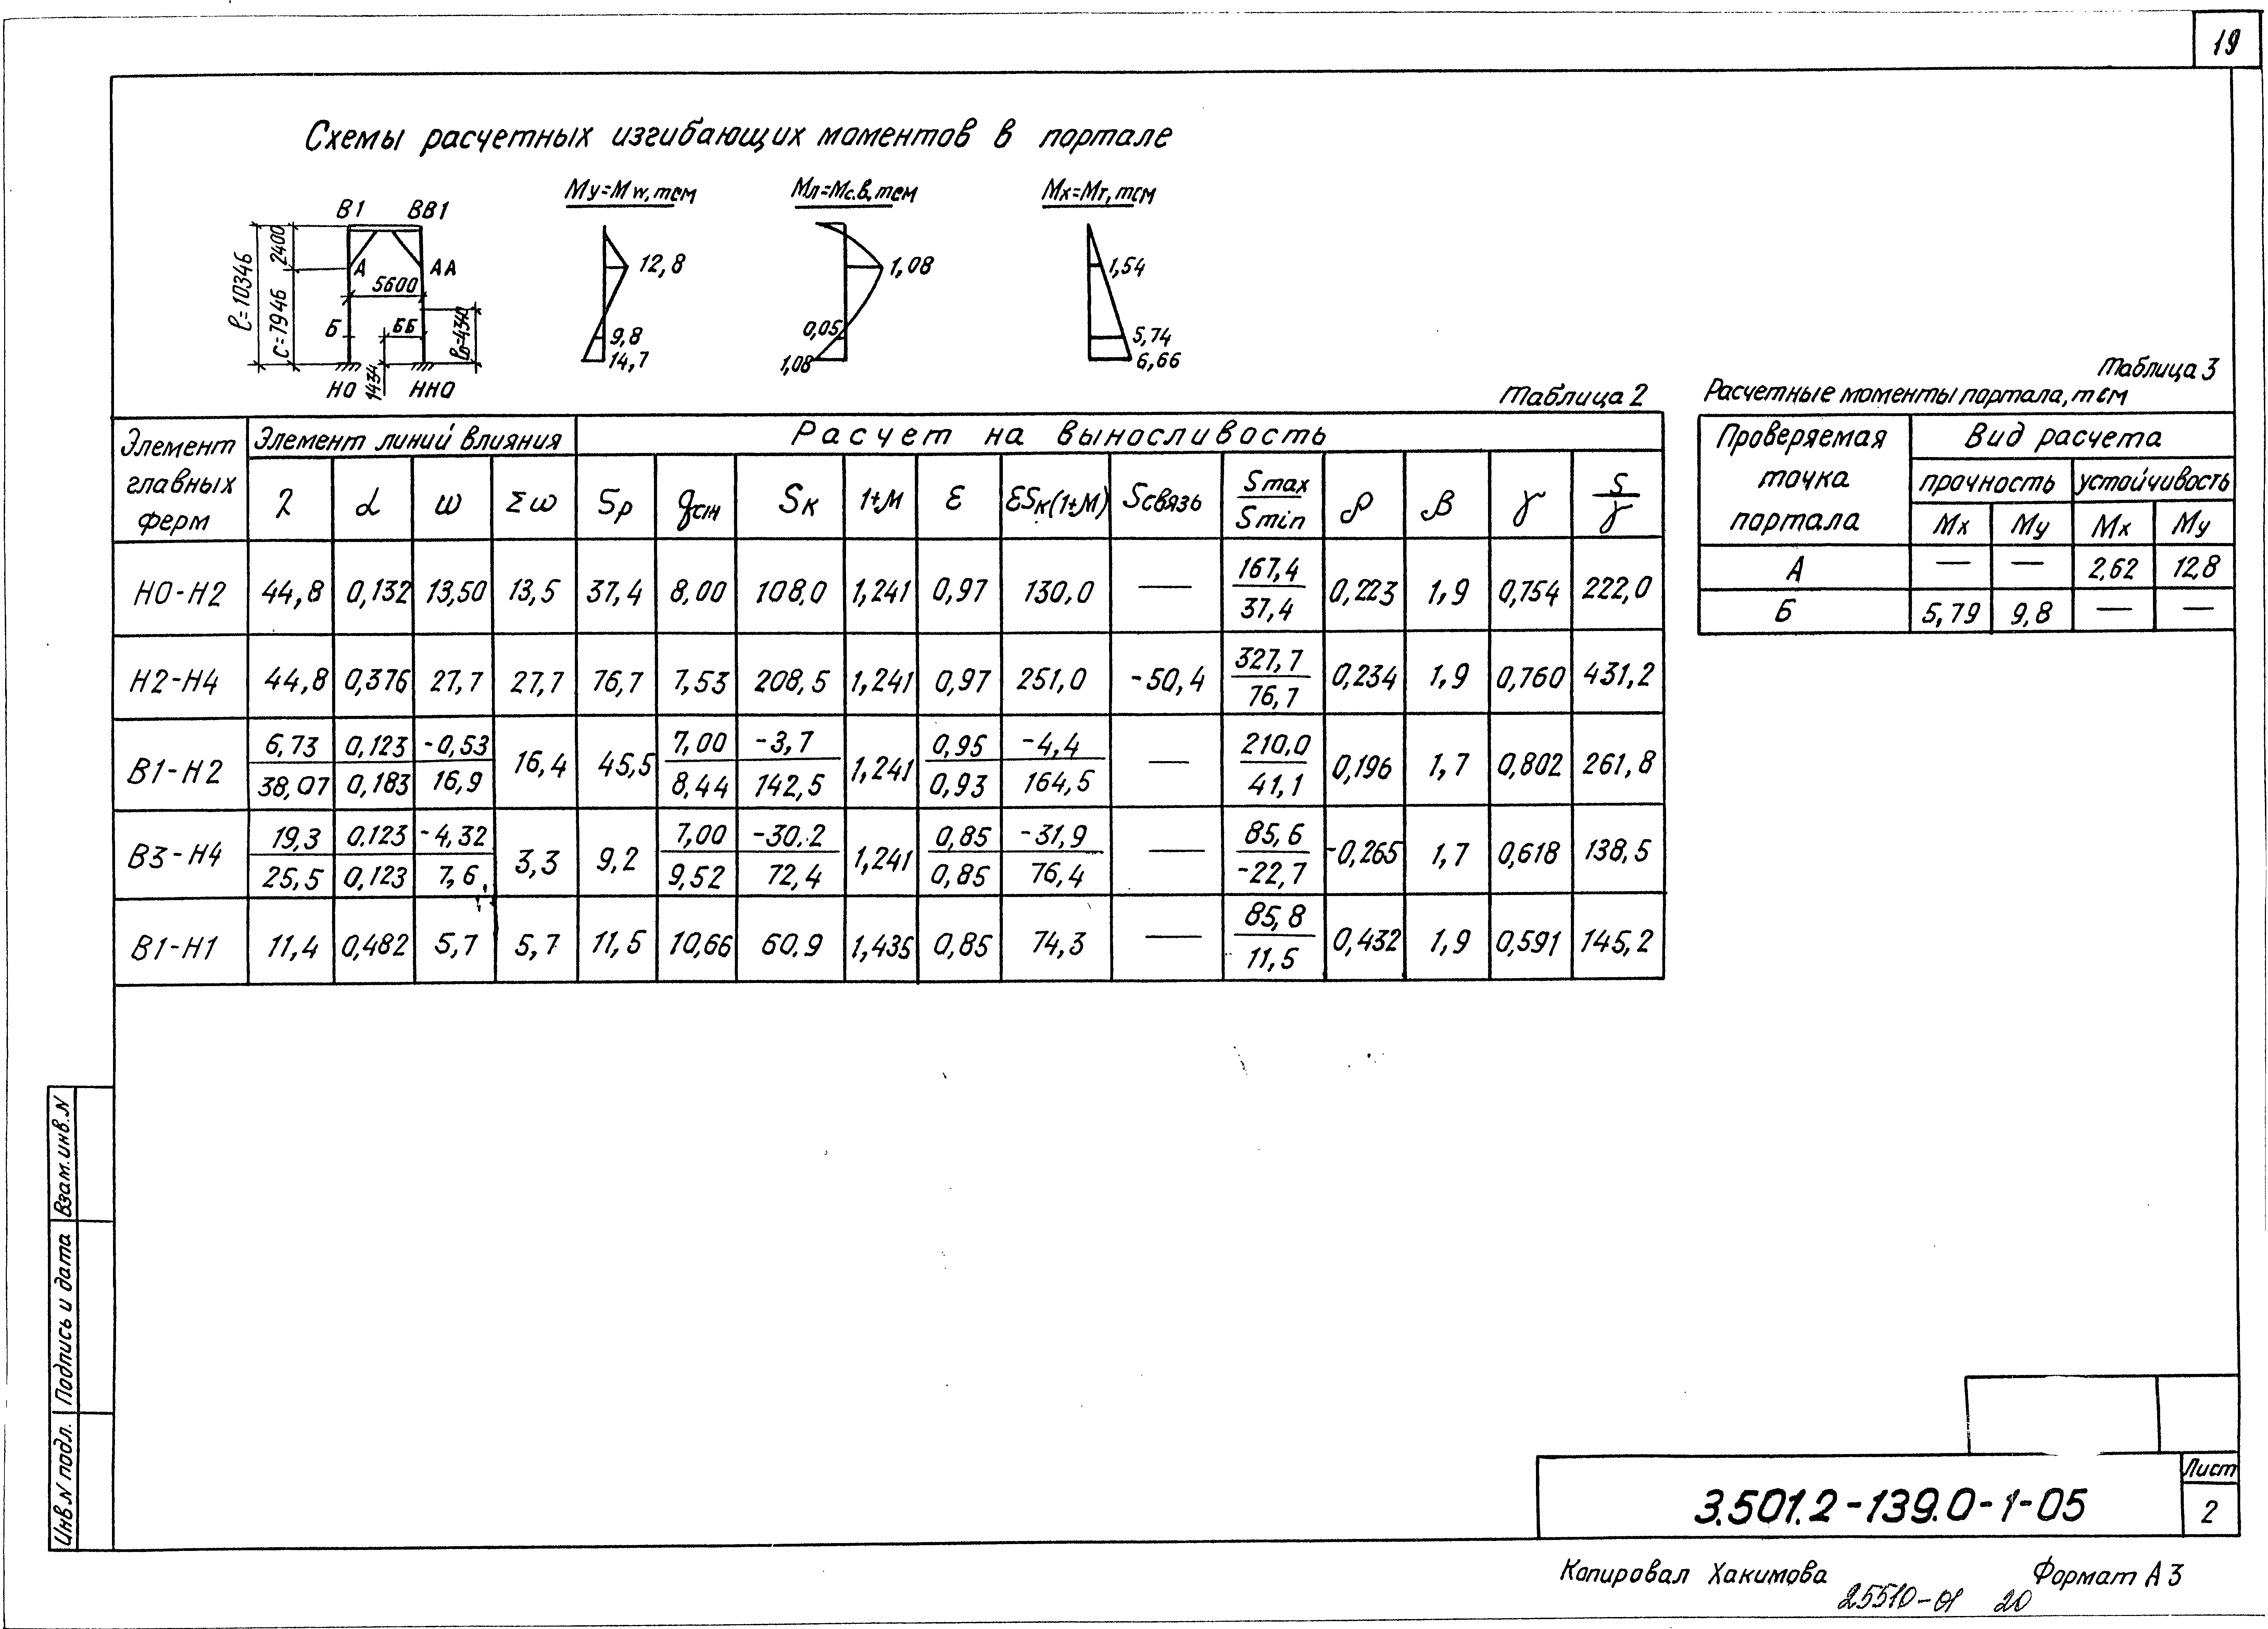 19
Схемы расчетных изгибающих моментов в портале
Mу=Mw, тсм
Mл=Mс.в, тсм
Mх=Mт, тсм
В1 ВВ1
ℓ=10346
C=7946
2400
А АА
5600
Б ББ
ℓ₀=4340
1434
Н0 НН0
12,8
9,8
14,7
1,08
0,05
1,08
1,54
5,74
6,66
Таблица 2
Элемент главных ферм | Элемент линий влияния | Расчет на выносливость
λ | α | ω | Σω | Sр | qсін | Sк | 1+М | Ɛ | ƐSк(1+М) | Sсвязь | Smax/Smin | ρ | β | γ | S/γ
Н0-Н2 | 44,8 | 0,132 | 13,50 | 13,5 | 37,4 | 8,00 | 108,0 | 1,241 | 0,97 | 130,0 | — | 167,4/37,4 | 0,223 | 1,9 | 0,754 | 222,0
Н2-Н4 | 44,8 | 0,376 | 27,7 | 27,7 | 76,7 | 7,53 | 208,5 | 1,241 | 0,97 | 251,0 | -50,4 | 327,7/76,7 | 0,234 | 1,9 | 0,760 | 431,2
В1-Н2 | 6,73/38,07 | 0,123/0,183 | -0,53/16,9 | 16,4 | 45,5 | 7,00/8,44 | -3,7/142,5 | 1,241 | 0,95/0,93 | -4,4/164,5 | — | 210,0/41,1 | 0,196 | 1,7 | 0,802 | 261,8
В3-Н4 | 19,3/25,5 | 0.123/0,123 | -4,32/7,6 | 3,3 | 9,2 | 7,00/9,52 | -30.2/72,4 | 1,241 | 0,85/0,85 | -31,9/76,4 | — | 85,6/-22,7 | -0,265 | 1,7 | 0,618 | 138,5
В1-Н1 | 11,4 | 0,482 | 5,7 | 5,7 | 11,5 | 10,66 | 60.9 | 1,435 | 0,85 | 74,3 | — | 85,8/11,5 | 0,432 | 1,9 | 0,591 | 145,2
Таблица 3
Расчетные моменты портала, тсм
Проверяемая точка портала | Вид расчета
прочность | устойчивость
Mх | Mу | Mх | Mу
А | — | — | 2,62 | 12,8
Б | 5,79 | 9,8 | — | —
Взам. инв. N
Подпись и дата
Инв. N подл.
3.501.2-139.0-1-05
Лист
2
Копировал Хакимова Формат А3
25510-01 20